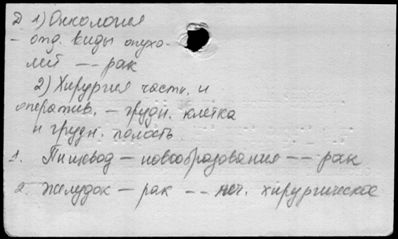 Д 1) Онкология
– отд. виды опухо-
лей – – рак
2) Хирургия частн. и
оператив. – грудн. клетка
и грудн. полость
1. Пищевод – новообразования – – рак
2. Желудок – рак – – леч. хирургическое